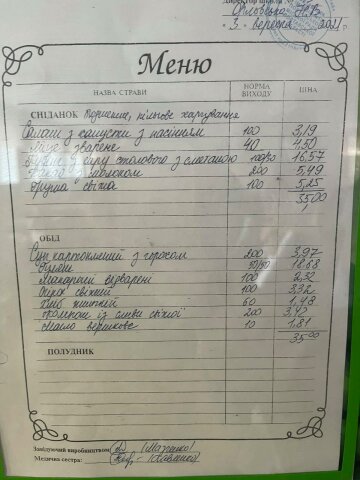 Директор школи
3 вересня 2021
Меню
НАЗВА СТРАВИ НОРМА ВИХОДУ ЦІНА
СНІДАНОК пільгове харчування
Салат з капусти з насінням 100 3,19
Яйце зварене 40 4,50
сиру столового з сметаною 100/30 16,57
з яблоком 200 5,49
Груша свіжа 100 5,25
35,00
ОБІД
Суп картопляний з горохом 200 3,97
50/50 18,68
Макарони відварені 100 2,32
Огірок свіжий 100 3,32
Хліб житній 60 1,48
Компот із сливи свіжої 200 3,42
Масло вершкове 10 1,81
35,00
ПОЛУДНИК
Завідуючий виробництвом
Медична сестра: